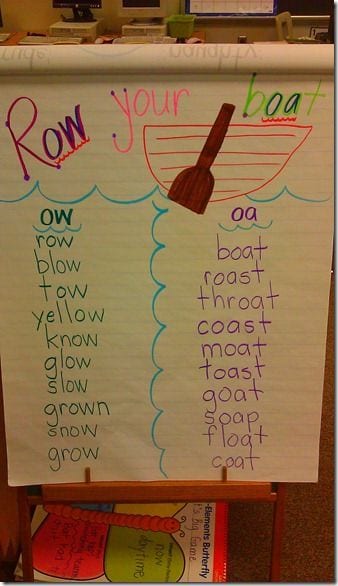 Row your boat
ow
row
blow
tow
yellow
know
glow
slow
grown
snow
grow
oa
boat
roast
throat
coast
moat
toast
goat
soap
float
coat
-Elements Butterfly
now
daytime